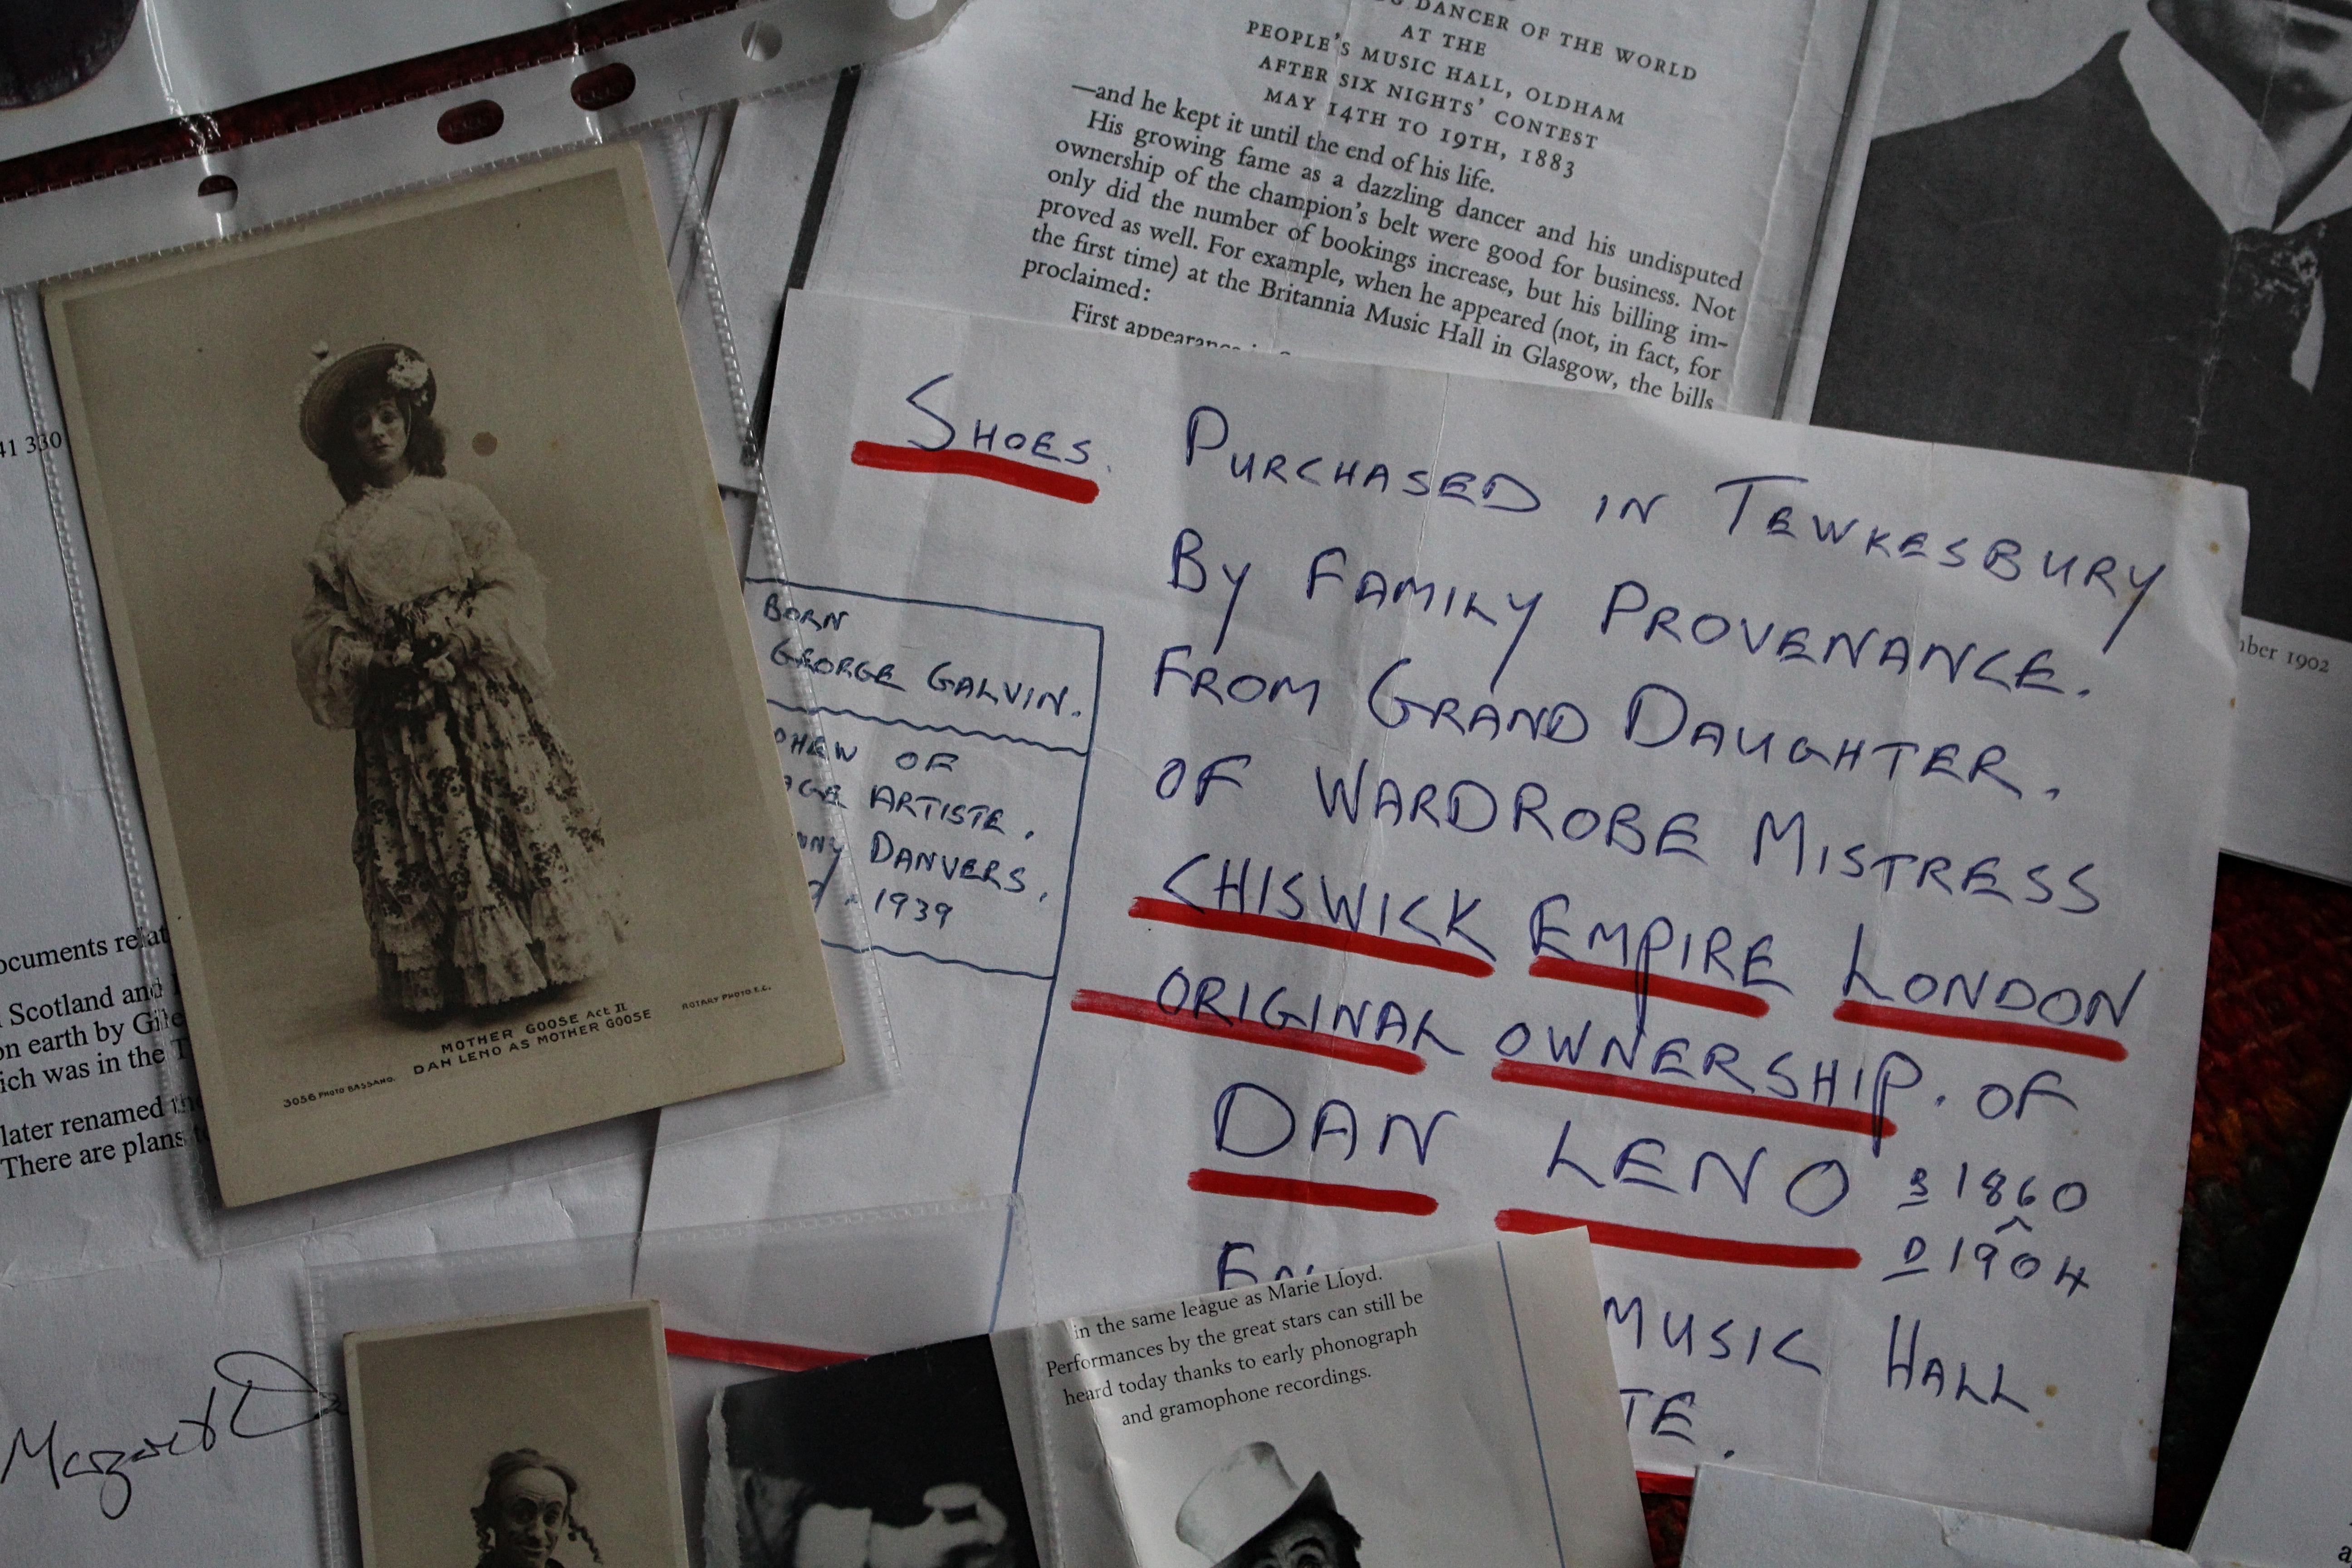 DANCER OF THE WORLD
AT THE
PEOPLE'S MUSIC HALL, OLDHAM
AFTER SIX NIGHTS' CONTEST
MAY 14TH TO 19TH, 1883
—and he kept it until the end of his life.
His growing fame as a dazzling dancer and his undisputed
ownership of the champion's belt were good for business. Not
only did the number of bookings increase, but his billing im-
proved as well. For example, when he appeared (not, in fact, for
the first time) at the Britannia Music Hall in Glasgow, the bills
proclaimed:
First appearance
SHOES. PURCHASED IN TEWKESBURY
BY FAMILY PROVENANCE.
FROM GRAND DAUGHTER.
OF WARDROBE MISTRESS
CHISWICK EMPIRE LONDON
ORIGINAL OWNERSHIP. OF
DAN LENO B 1860
D 1904
MUSIC HALL
BORN
GEORGE GALVIN.
OF
ARTISTE.
DANVERS.
1939
1902
MOTHER GOOSE ACT II
DAN LENO AS MOTHER GOOSE
ROTARY PHOTO E.C.
3056 PHOTO BASSANO.
330
Scotland and
on earth by
which was in the
later renamed the
There are plans
Margaret
in the same league as Marie Lloyd.
Performances by the great stars can still be
heard today thanks to early phonograph
and gramophone recordings.